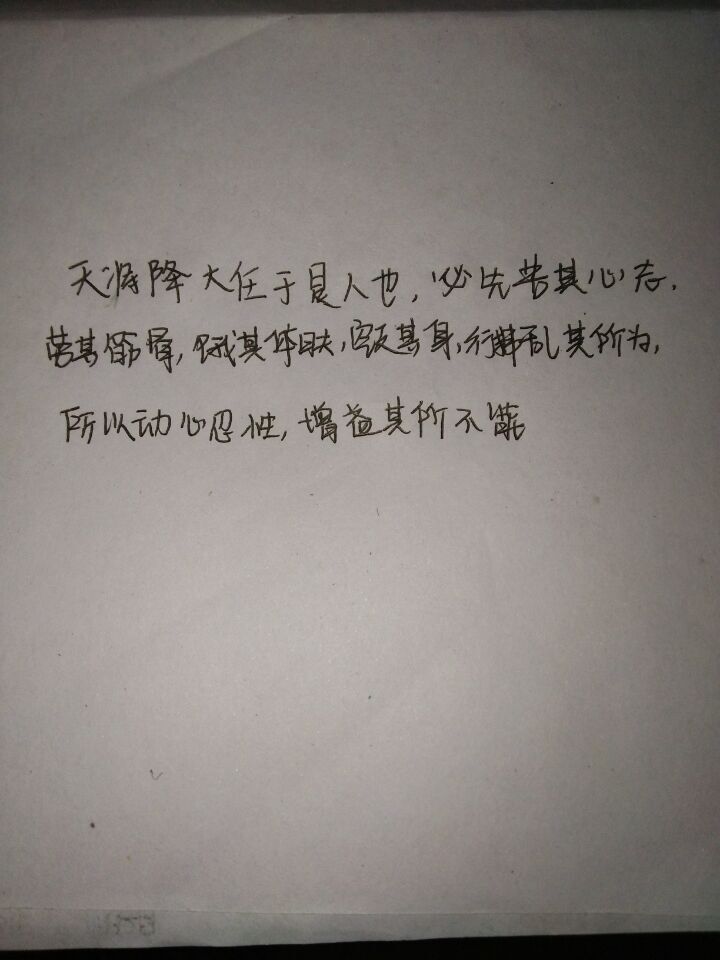 天将降大任于是人也,必先苦其心志.
劳其筋骨,饿其体肤,空乏其身,行拂乱其所为,
所以动心忍性,增益其所不能